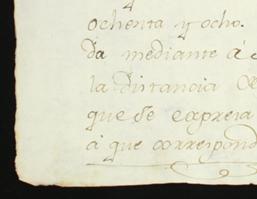 ochenta y ocho.
da mediante á
la distancia
que se expresa
á que correspond